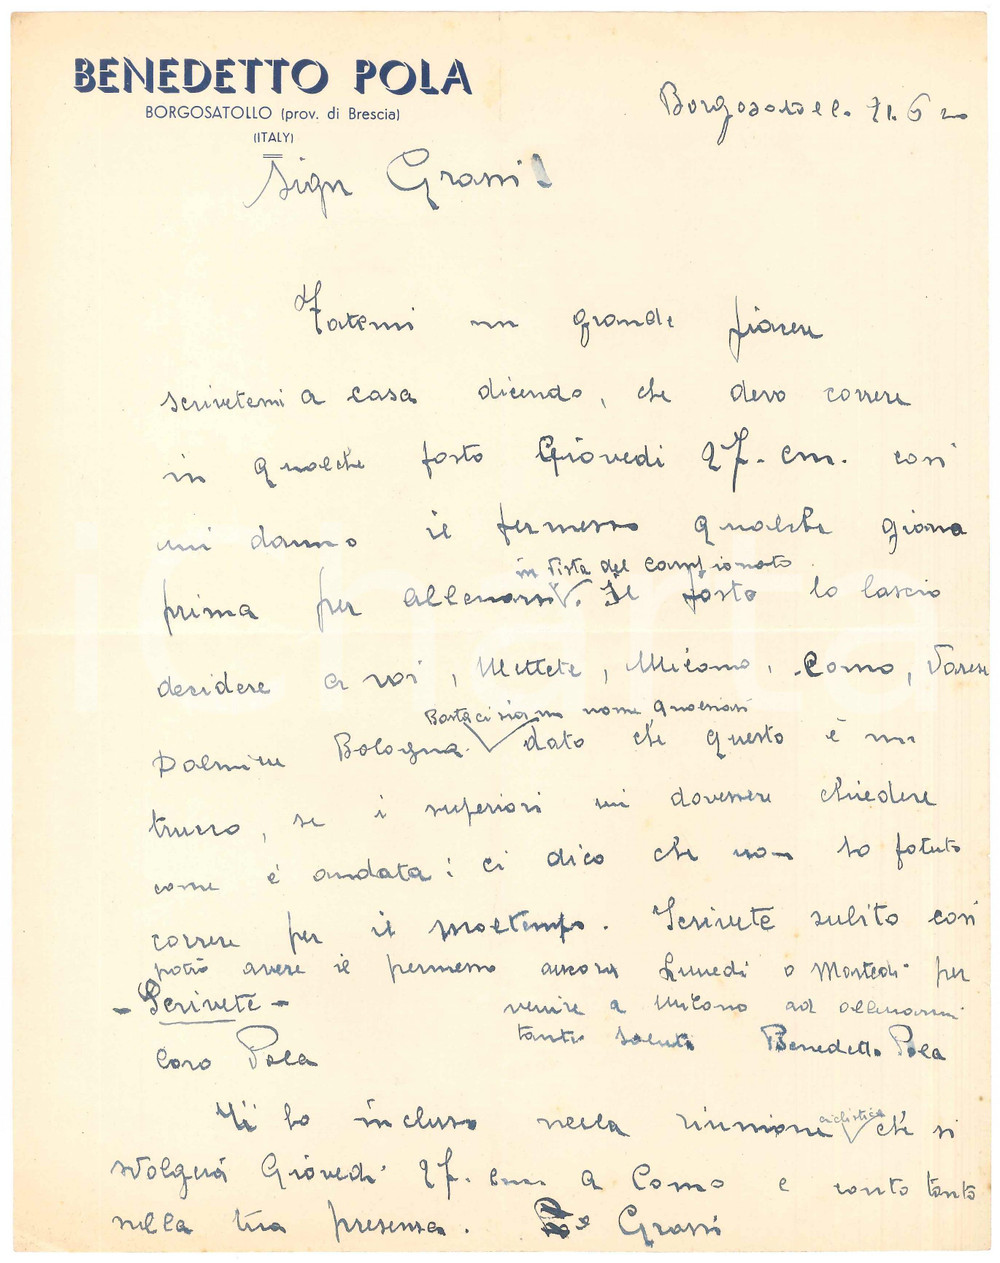 BENEDETTO POLA
BORGOSATOLLO (prov. di Brescia)
(ITALY)
Borgosatollo 21. 6
Sign Grassi
Fatemi un grande piacere
scrivetemi a casa dicendo, che devo correre
in qualche posto Giovedi 27. cm. così
mi danno il permesso qualche giorno
in vista del campionato
prima per allenarsi. Il posto lo lascio
decidere a voi, Mettete, Milano, Como, Varese
Basta ci sia un nome qualsiasi
Dalmine Bologna. dato che questo è un
trucco, se i superiori mi dovessere chiedere
come è andata: ci dico che non ho potuto
correre per il maltempo. Scrivete subito così
potrò avere il permesso ancora Lunedi o Martedi per
- Scrivete - venire a Milano ad allenarmi
tanti saluti Benedetto Pola
Caro Pola
Ti ho incluso nella riunione ciclistica che si
svolgerà Giovedi 27. cm. a Como e conto tanto
sulla tua presenza. Grassi